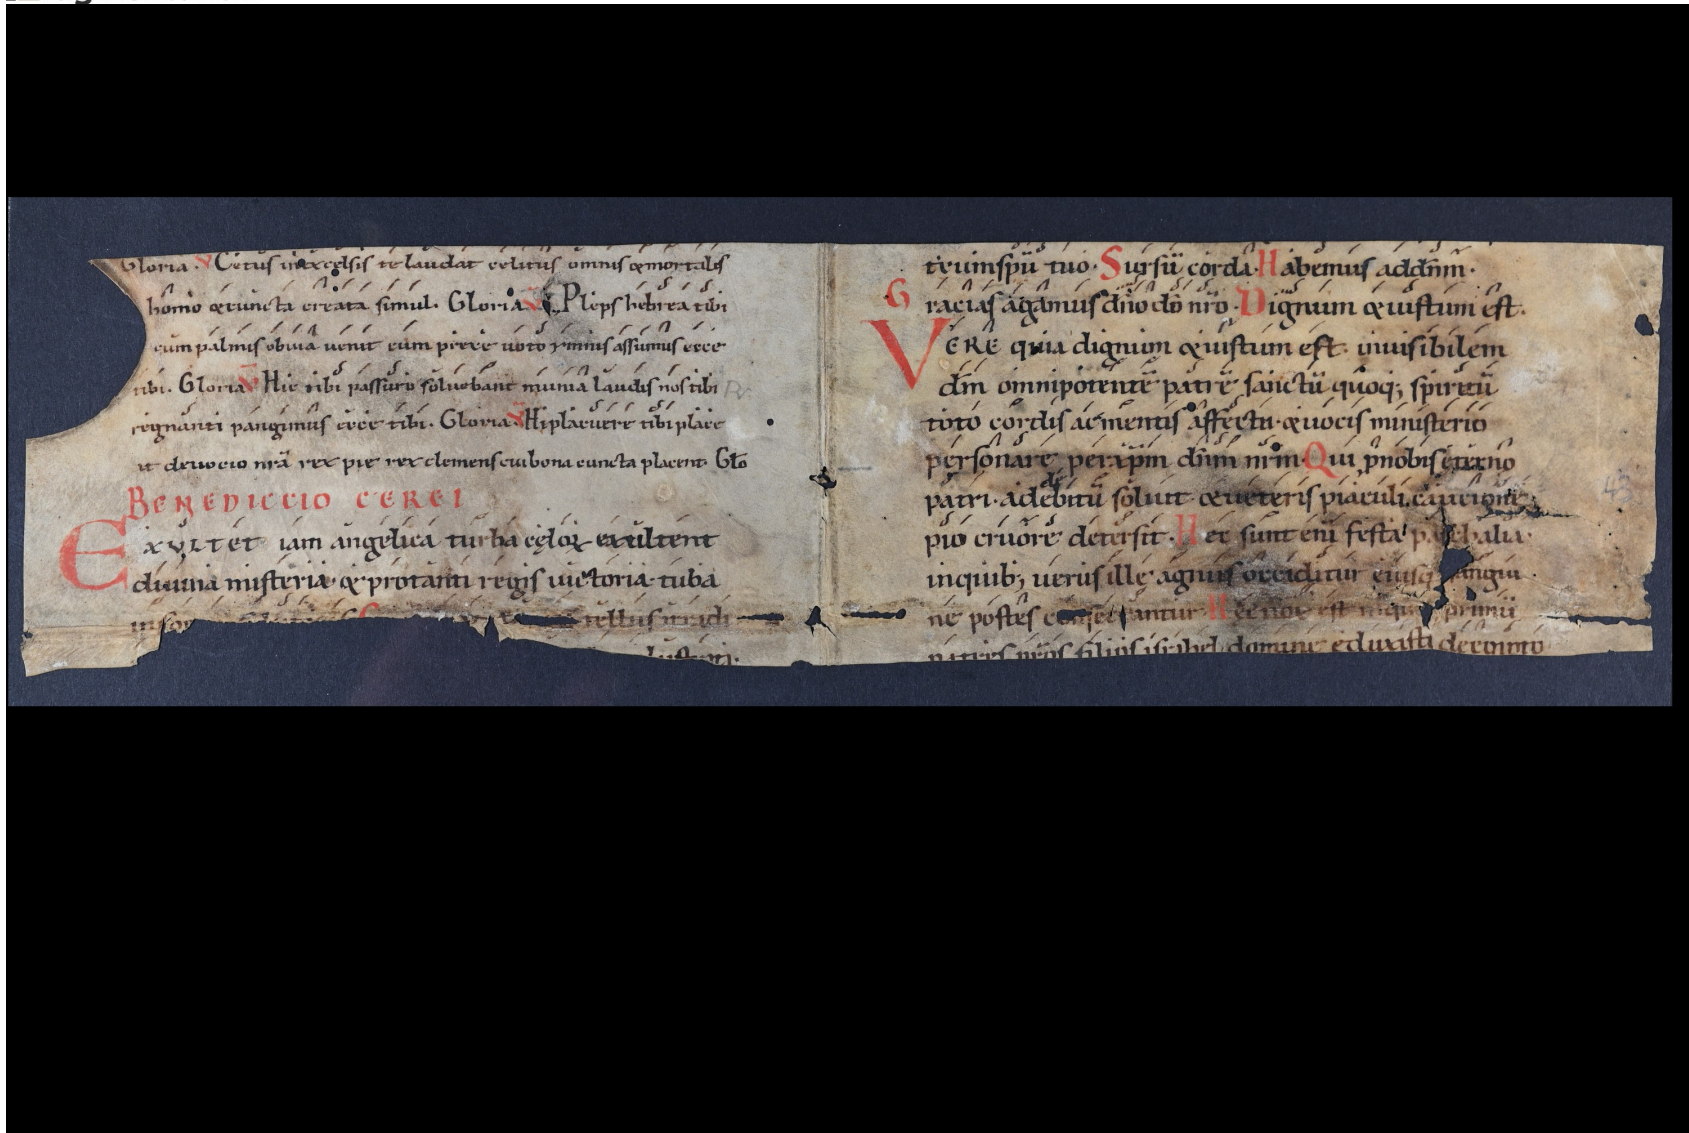 Gloria. V Cetus inexcelsis te laudat celitus omnis & mortalis
homo & cuncta creata simul. Gloria V Plebs hebrea tibi
cum palmis obvia venit cum prece voto ymnis assumus ecce
tibi. Gloria V Hic tibi passuro solvebant munia laudis nos tibi
regnanti pangimus ecce tibi. Gloria V Hi placuere tibi place
at devocio nrā rex pie rex clemens cui bona cuncta placent. Glo
BENEDICCIO CEREI
EXULTET iam angelica turba cęloꝝ exultent
divina misteria & pro tanti regis victoria tuba
tellus irradi
lustrati.
& cum spū tuo. Sursū corda. Habemus ad dn̄m.
Gracias agamus dn̄o dō nr̄o. Dignum & iustum est.
VERE quia dignum & iustum est. invisibilem
dm̄ omnipotentē patrē sanctū quoq; spiritū
toto cordis ac mentis affectu. & vocis ministerio
personare. per xp̄m dn̄m nr̄m. Qui p nobis ęterno
patri. adę debitū solvit. & veteris piaculi cautione
pio cruore detersit. Hec sunt enī festa paschalia.
in quib; verus ille agnus occiditur eiusq; sangui
ne postes consecrantur. Hec nox est in qua primū
patres nr̄os filios israhel domine eduxisti de egipto